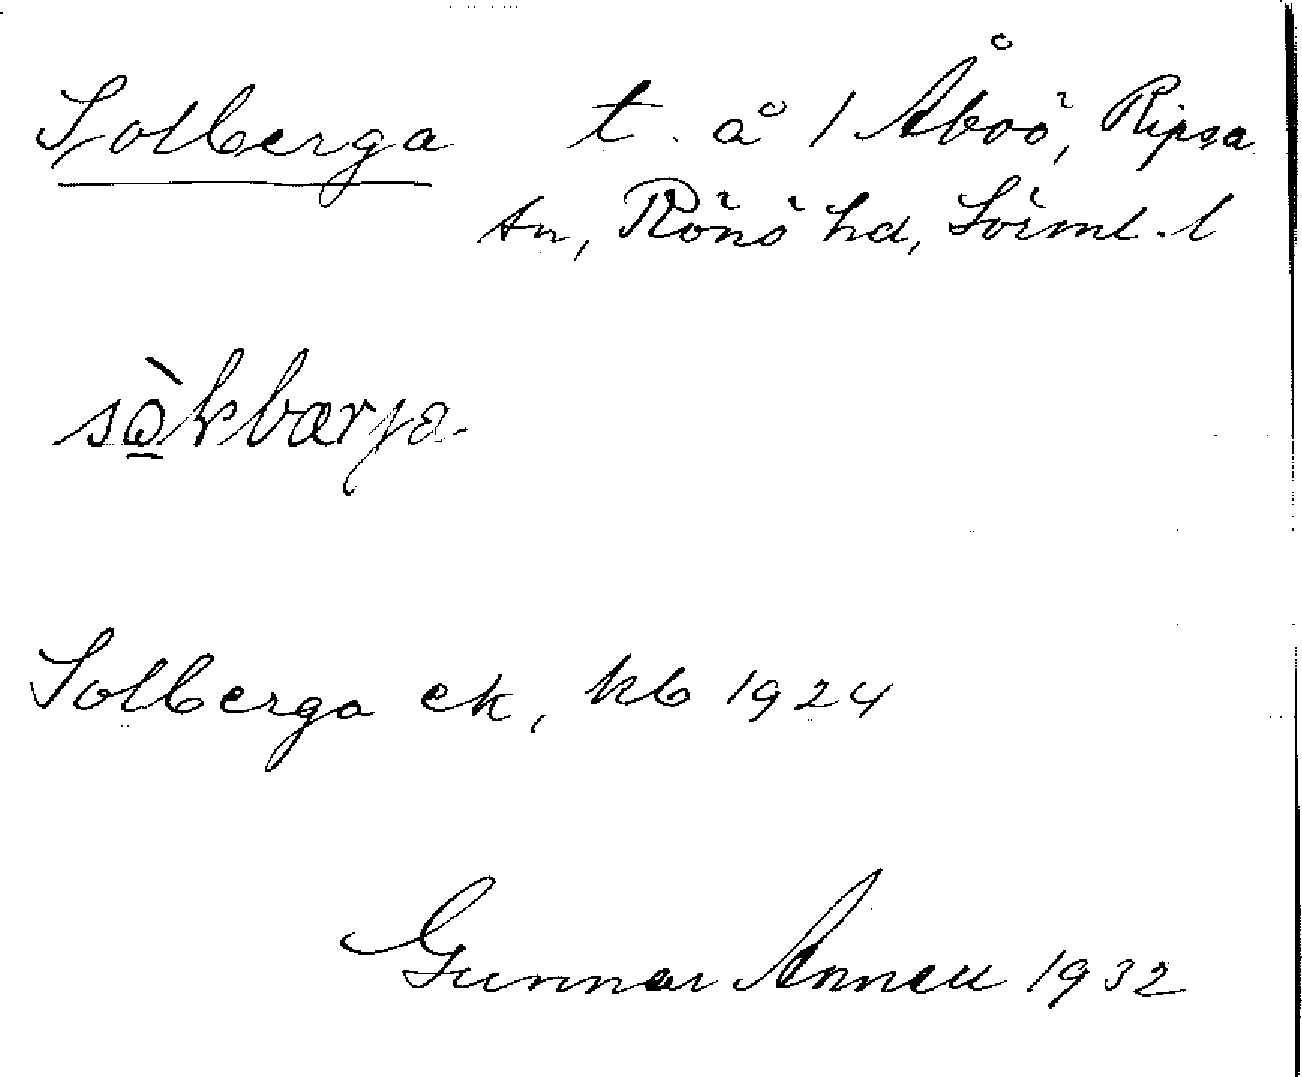 Solberga t. å 1 Åboö, Ripsa
sn, Rönö hd, Sörml. l
Solberga ek, kb 1924
Gunnar Annell 1932